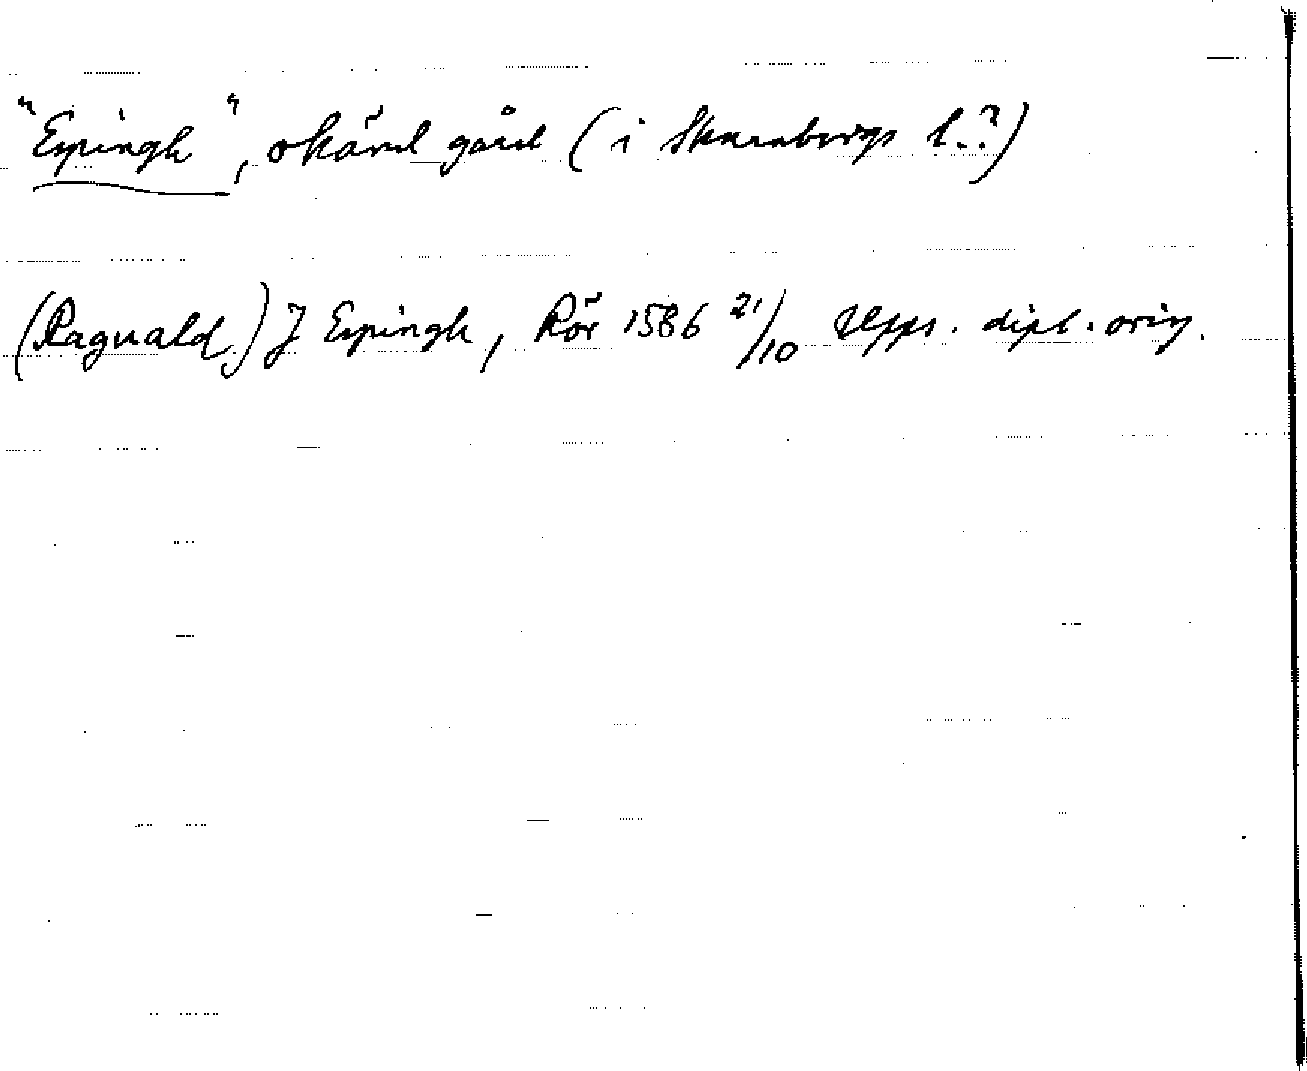 "Espingh", okänd gård (i Skaraborgs l.?)
(Raguald) J Espingh, Rör 1586 21/10 Upps. dipl. orig.